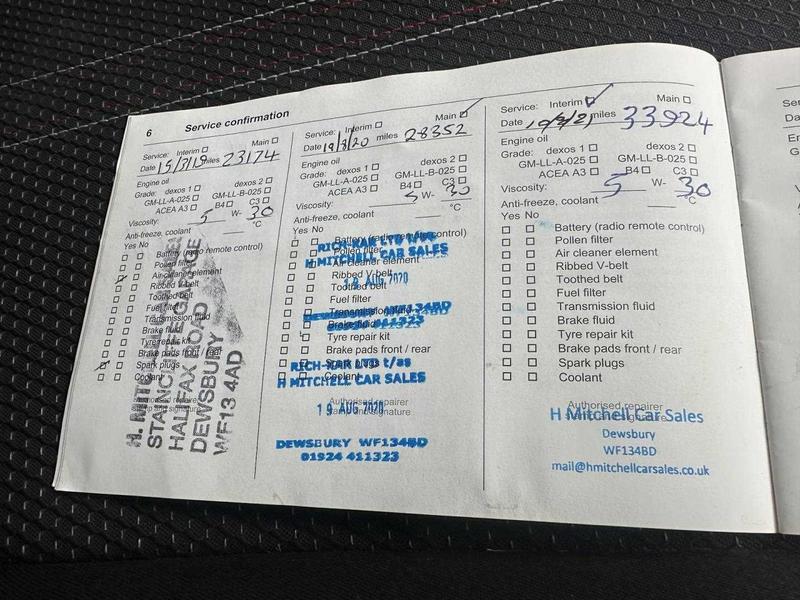 6 Service confirmation
Service: Interim Main
Date 15/3/19 miles 23174
Engine oil
Grade: dexos 1 dexos 2
GM-LL-A-025 GM-LL-B-025
ACEA A3 B4 C3
Viscosity: 5 W- 30
Anti-freeze, coolant °C
Yes No
Battery (radio remote control)
Pollen filter
Air cleaner element
Ribbed V-belt
Toothed belt
Fuel filter
Transmission fluid
Brake fluid
Tyre repair kit
Brake pads front / rear
Spark plugs
Coolant
STAINCLIFFE GARAGE
HALIFAX ROAD
DEWSBURY
WF13 4AD
Service: Interim Main
Date 19/8/20 miles 28352
Engine oil
Grade: dexos 1 dexos 2
GM-LL-A-025 GM-LL-B-025
ACEA A3 B4 C3
Viscosity: 5 W- 30
Anti-freeze, coolant °C
Yes No
Battery (radio remote control)
Pollen filter
Air cleaner element
Ribbed V-belt
Toothed belt
Fuel filter
Transmission fluid
Brake fluid
Tyre repair kit
Brake pads front / rear
Spark plugs
Coolant
RICH-KAR LTD t/as
H MITCHELL CAR SALES
19 AUG 2020
RICH-KAR LTD t/as
H MITCHELL CAR SALES
19 AUG 2020
DEWSBURY WF134BD
01924 411323
Service: Interim Main
Date miles 33924
Engine oil
Grade: dexos 1 dexos 2
GM-LL-A-025 GM-LL-B-025
ACEA A3 B4 C3
Viscosity: 5 W- 30
Anti-freeze, coolant °C
Yes No
Battery (radio remote control)
Pollen filter
Air cleaner element
Ribbed V-belt
Toothed belt
Fuel filter
Transmission fluid
Brake fluid
Tyre repair kit
Brake pads front / rear
Spark plugs
Coolant
Authorised repairer
H Mitchell Car Sales
Dewsbury
WF134BD
mail@hmitchellcarsales.co.uk